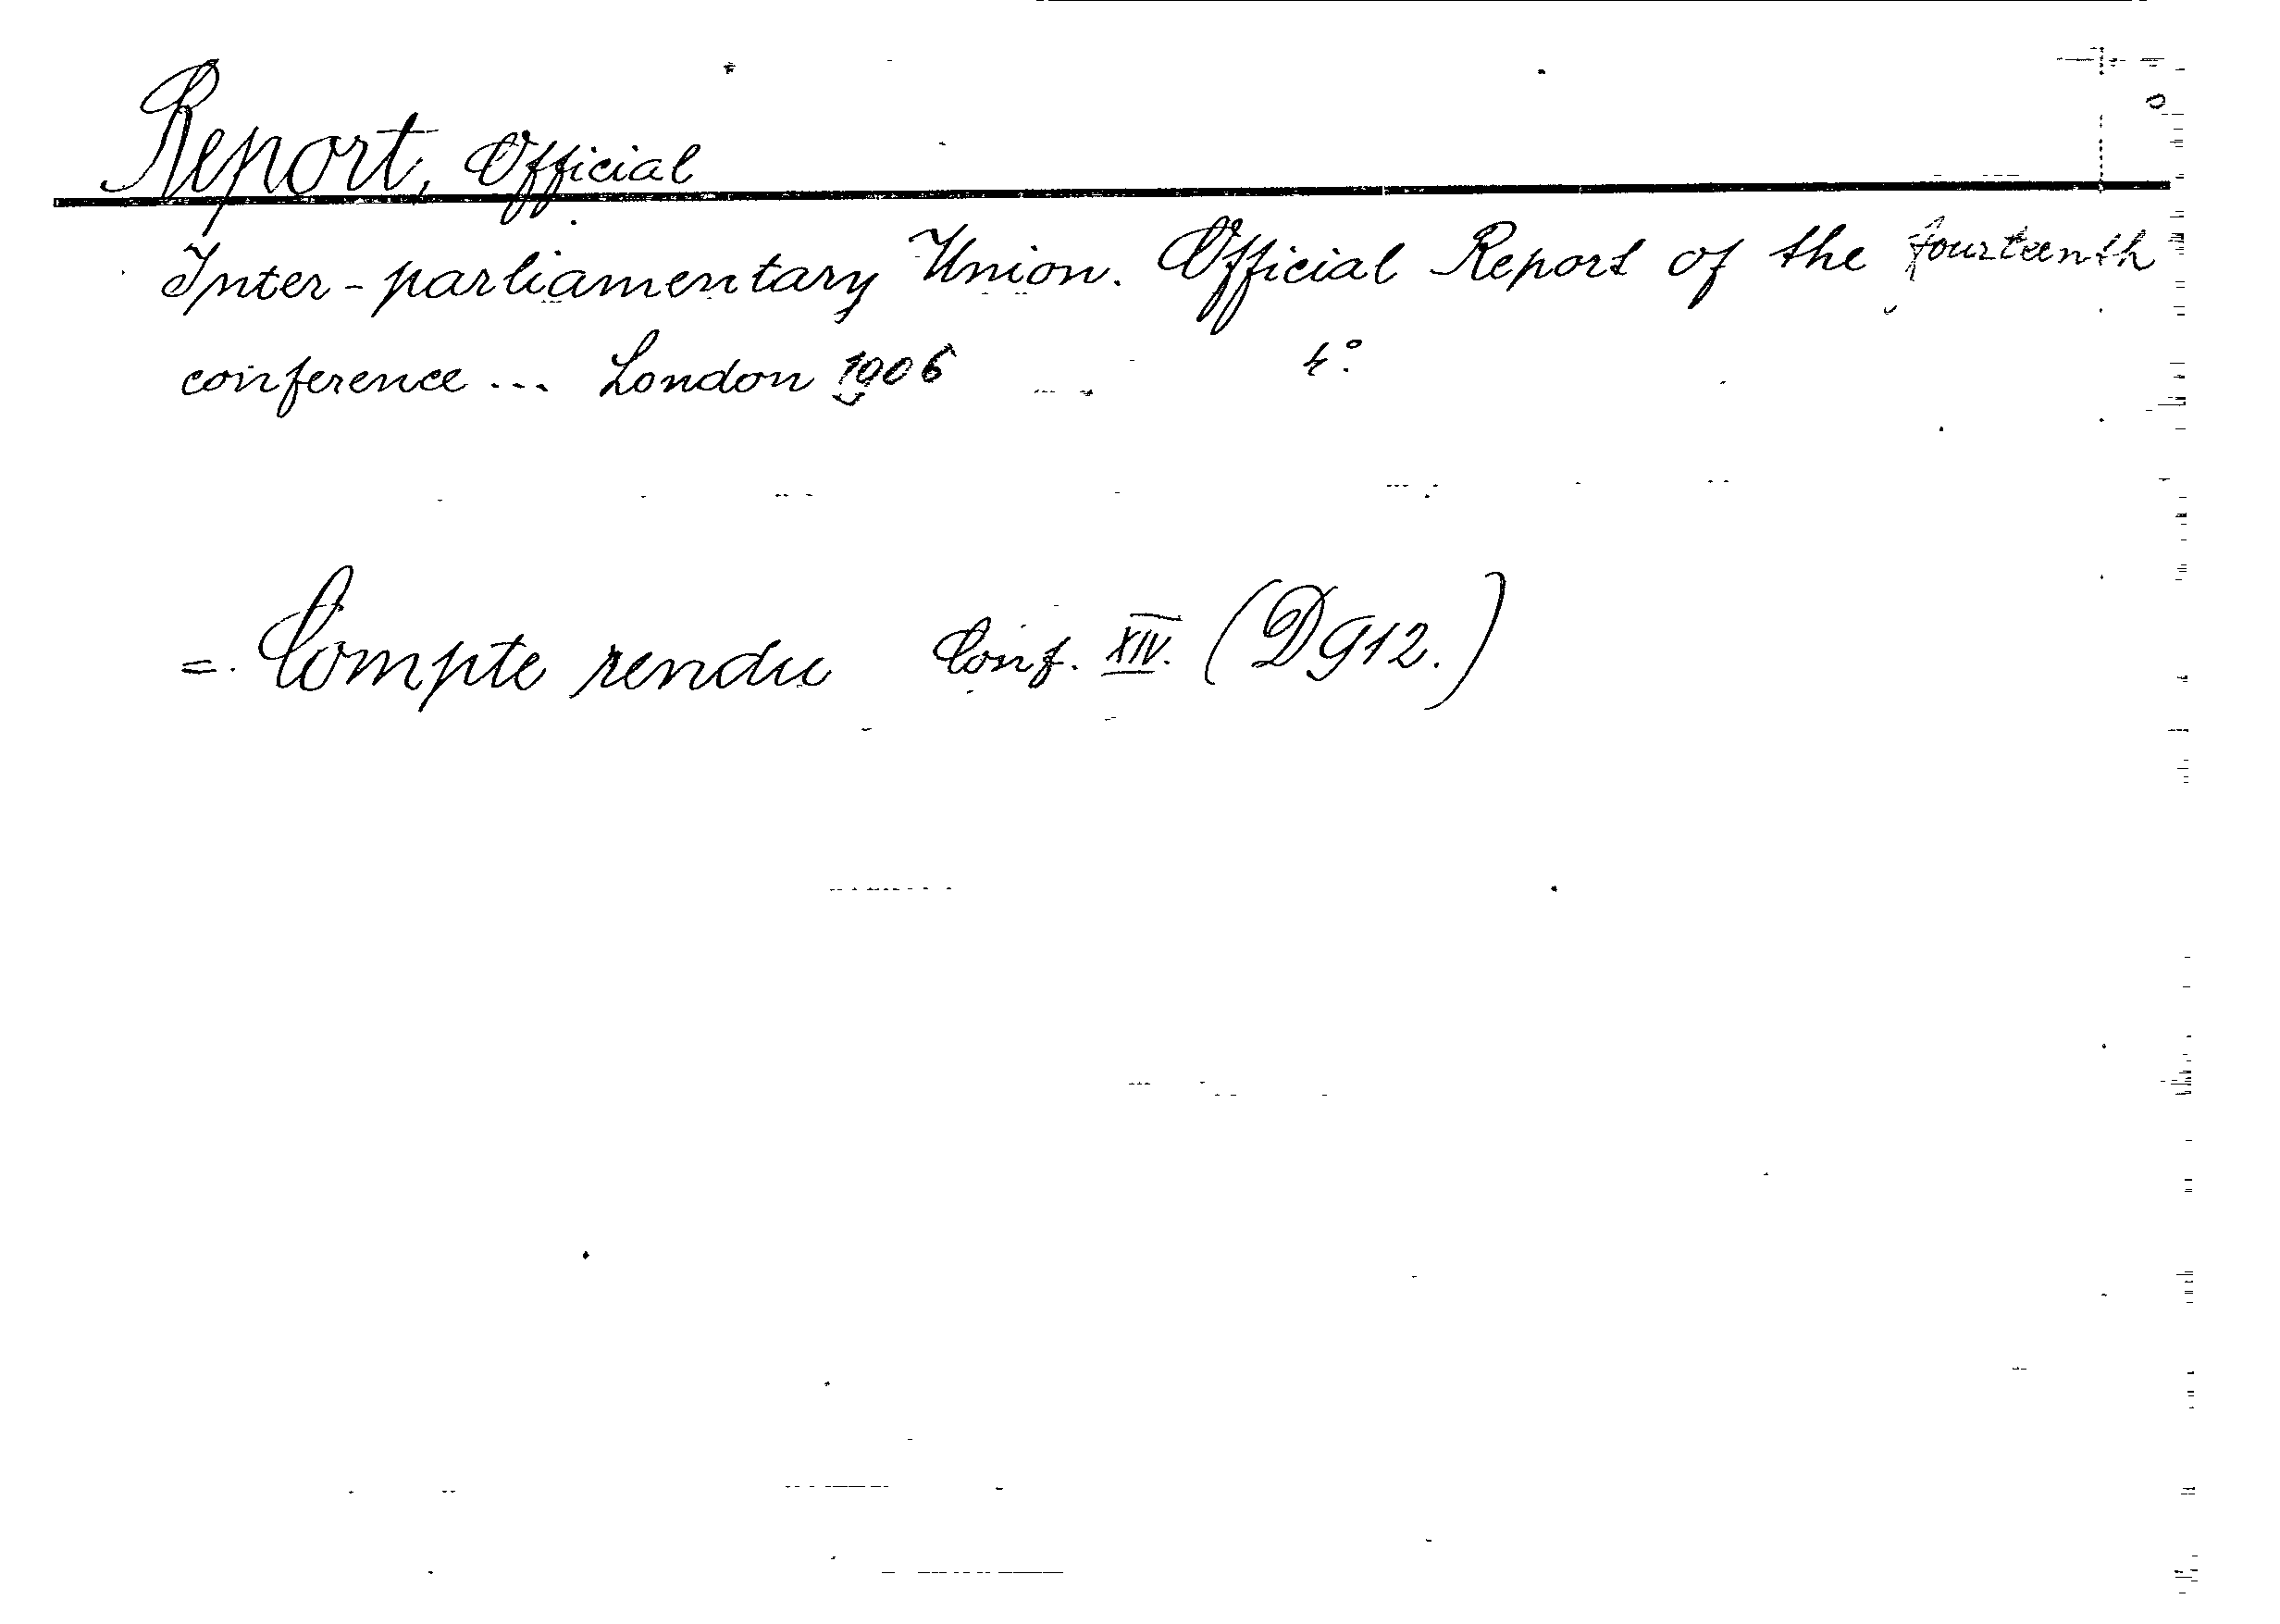 Report, Official
Inter-parliamentary Union. Official Report of the fourteenth
conference ... London 1906 4°.
=. Compte rendu Conf. XIV. (D912.)